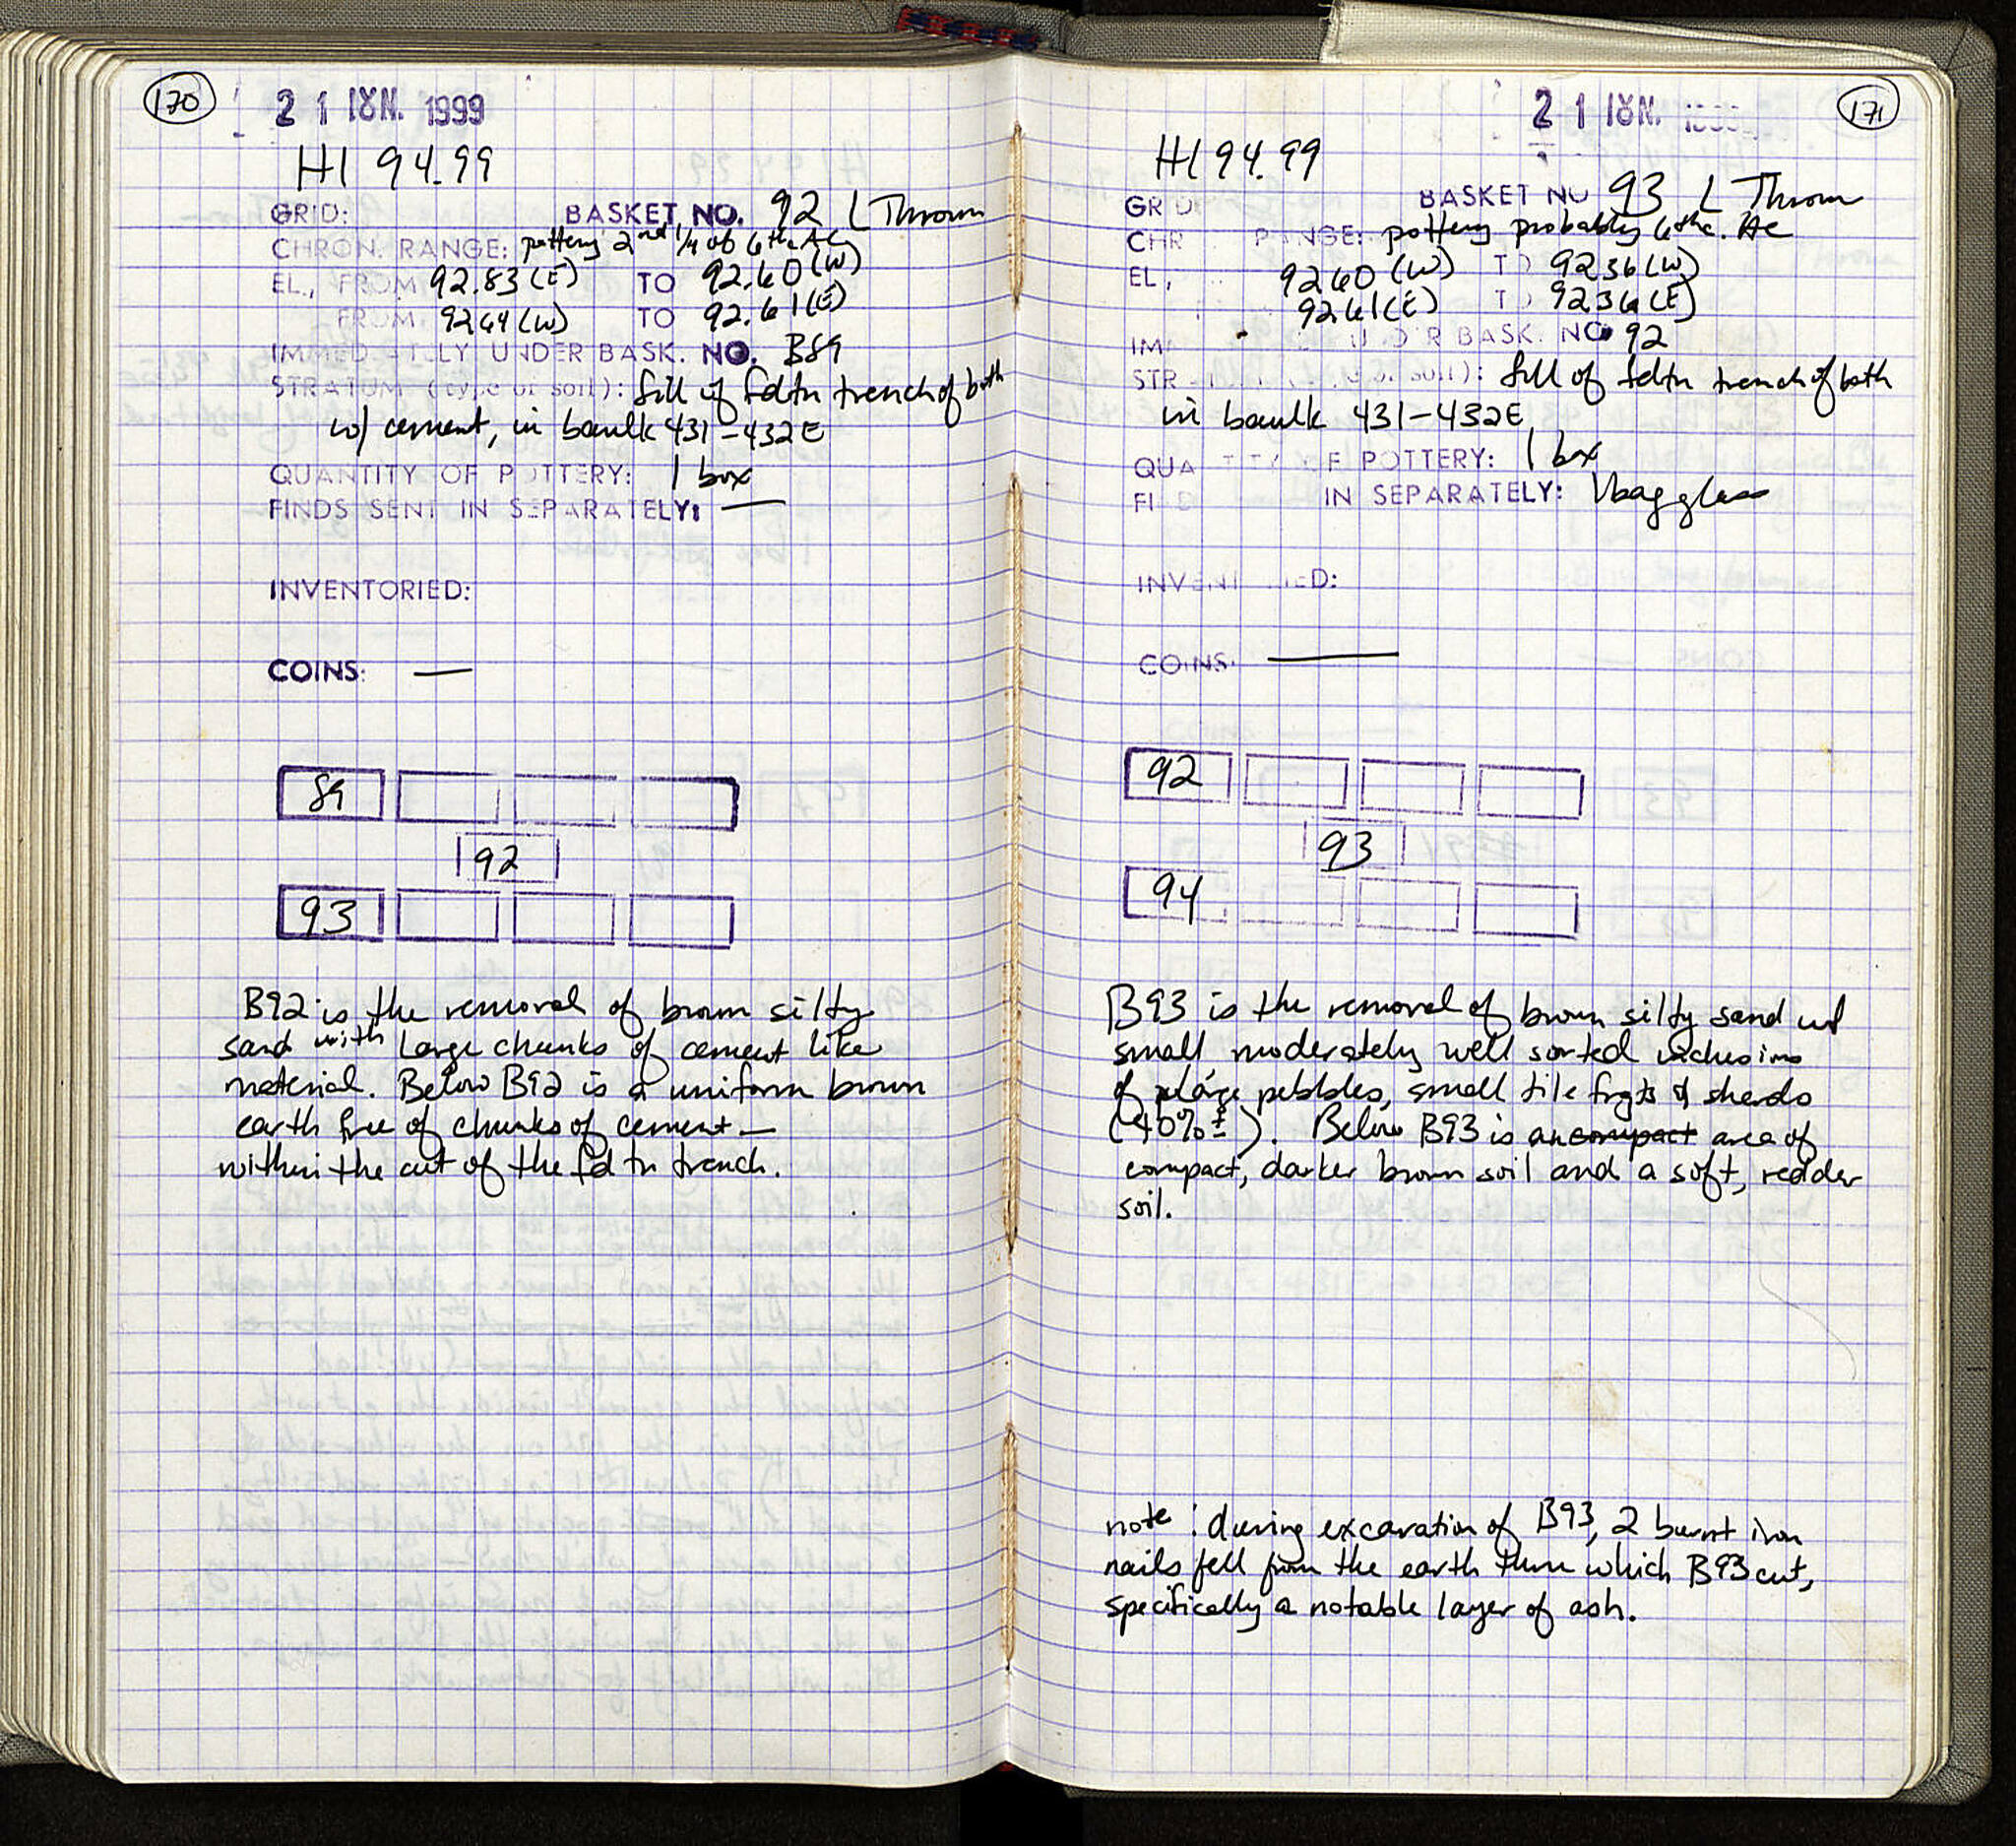 170
21 IOUN. 1999
H1 94.99
GRID: BASKET NO. 92 L Thrown
CHRON. RANGE: pottery 2nd 1/4 of 6th c AC
EL., FROM 92.83 (E) TO 92.60 (W)
FROM: 92.64 (W) TO 92.61 (E)
IMMEDIATELY UNDER BASK. NO. B89
STRATUM (type of soil): fill of fdtn trench of bath
w/ cement, in baulk 431-432E
QUANTITY OF POTTERY: 1 box
FINDS SENT IN SEPARATELY: —
INVENTORIED:
COINS: —
89
92
93
B92 is the removal of brown silty
sand with large chunks of cement like
material. Below B92 is a uniform brown
earth free of chunks of cement —
within the cut of the fdtn trench.
171
21 IOUN.
H1 94.99
GRID BASKET NO 93 L Thrown
CHR RANGE: pottery probably 6th c. AC
EL, 92.60 (W) TO 92.36 (W)
92.61 (E) TO 92.36 (E)
IM UNDER BASK. NO 92
STR soil): fill of fdtn trench of bath
in baulk 431-432E
QUANTITY OF POTTERY: 1 box
FI D IN SEPARATELY: 1 bag glass
INVENT IED:
COINS. —
92
93
94
B93 is the removal of brown silty sand w/
small moderately well sorted inclusions
of large pebbles, small tile frgts & sherds
(40% ±). Below B93 is an compact area of
compact, darker brown soil and a soft, redder
soil.
note: during excavation of B93, 2 burnt iron
nails fell from the earth thru which B93 cut,
specifically a notable layer of ash.